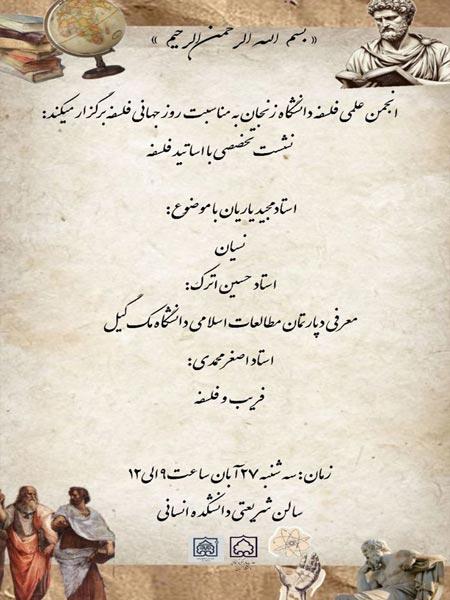 « بسم الله الرحمن الرحیم »
انجمن علمی فلسفه دانشگاه زنجان به مناسبت روز جهانی فلسفه برگزار میکند:
نشست تخصصی با اساتید فلسفه
استاد مجید یاریان با موضوع:
نسیان
استاد حسین اترک:
معرفی دپارتمان مطالعات اسلامی دانشگاه مک گیل
استاد اصغر محمدی:
فریب و فلسفه
زمان: سه شنبه ۲۷ آبان ساعت ۹ الی ۱۲
سالن شریعتی دانشکده انسانی